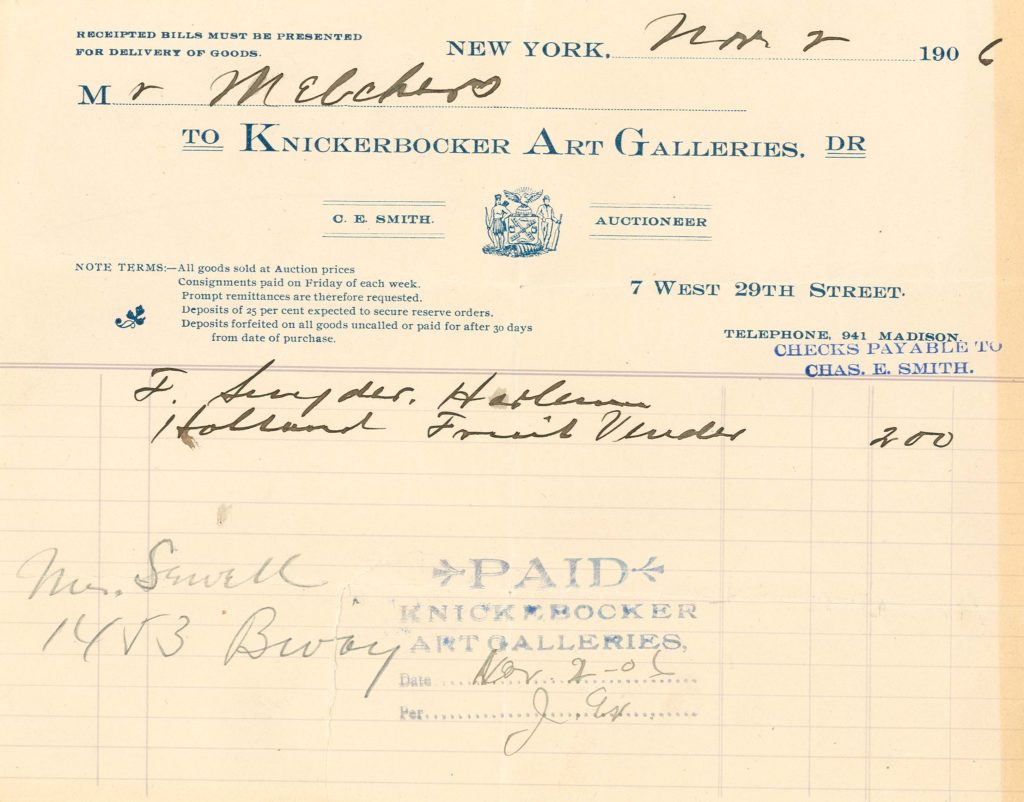 RECEIPTED BILLS MUST BE PRESENTED
FOR DELIVERY OF GOODS.
NEW YORK, Nov 2 1906
Mr Melchers
TO KNICKERBOCKER ART GALLERIES, DR
C. E. SMITH. AUCTIONEER
NOTE TERMS:—All goods sold at Auction prices
Consignments paid on Friday of each week.
Prompt remittances are therefore requested.
Deposits of 25 per cent expected to secure reserve orders.
Deposits forfeited on all goods uncalled or paid for after 30 days
from date of purchase.
7 WEST 29TH STREET.
TELEPHONE, 941 MADISON.
CHECKS PAYABLE TO
CHAS. E. SMITH.
F. Snyder. Harlem
Holland Fruit Vender 200
Mr. Sewell
1453 Bway
PAID
KNICKEBOCKER
ART GALLERIES,
Date Nov. 2-06
Per J.